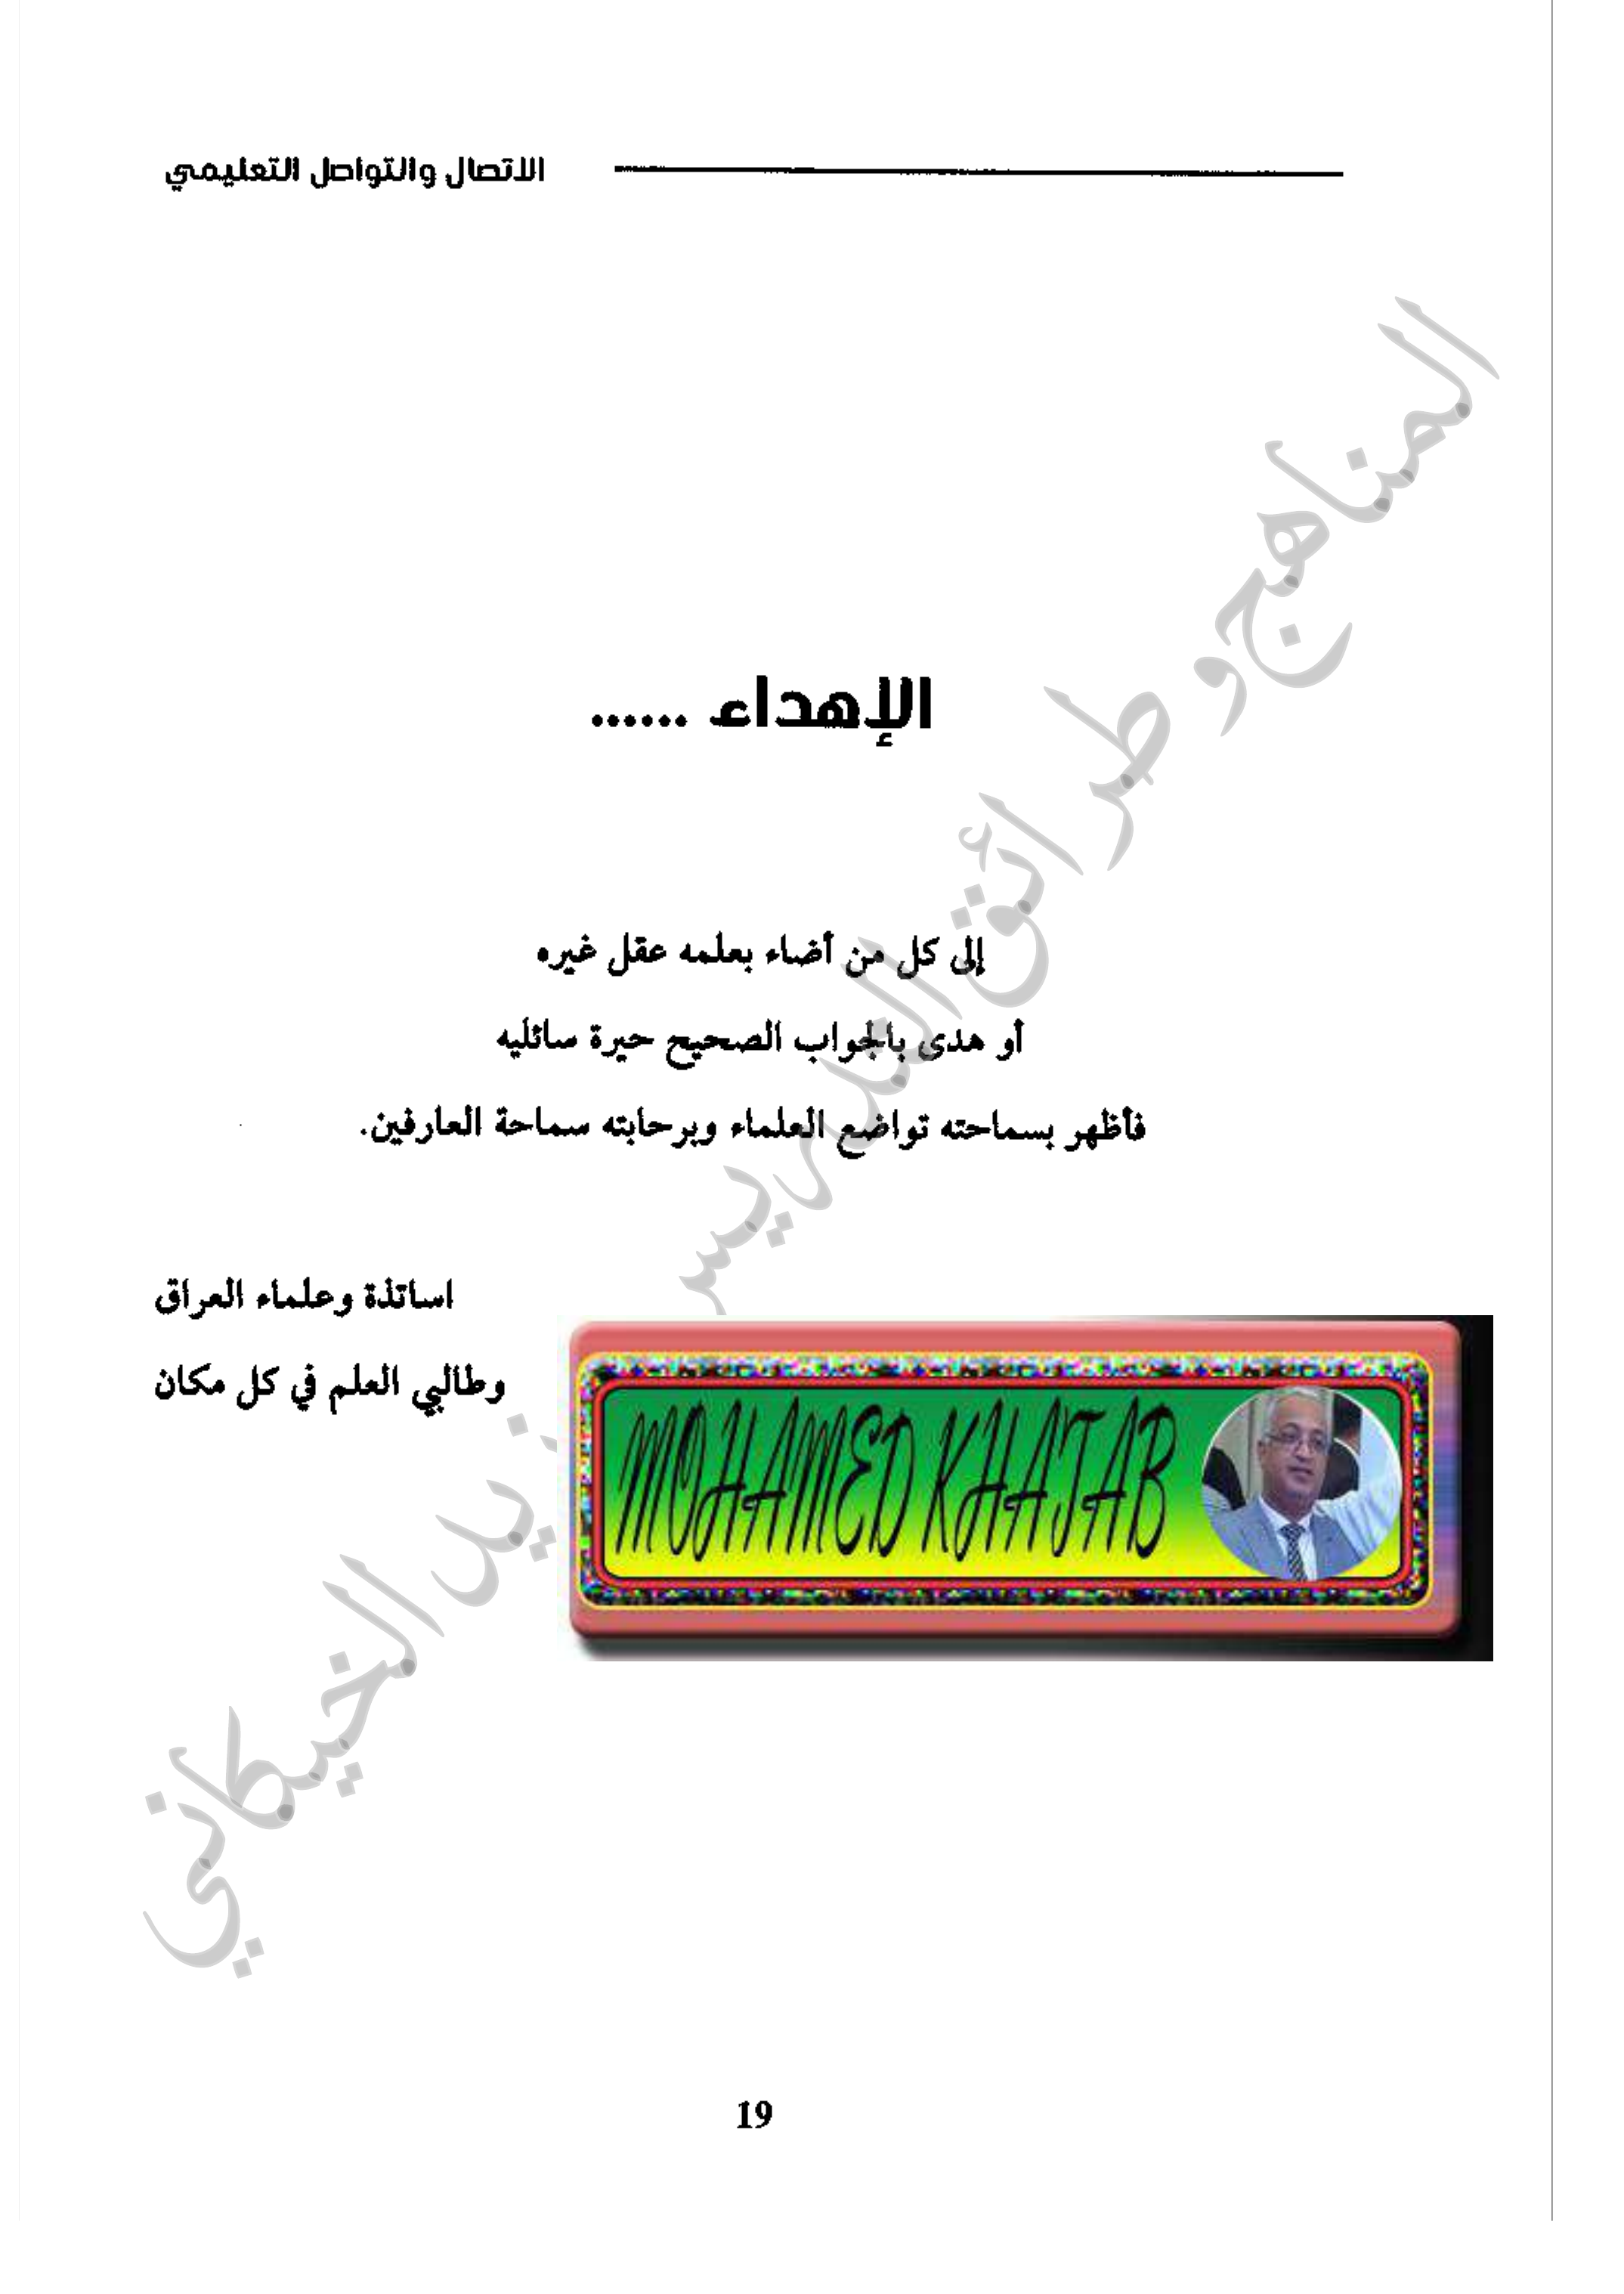 الاتصال والتواصل التعليمي
الإهداء ......
إلى كل من أضاء بعلمه عقل غيره
أو هدى بالجواب الصحيح حيرة سائليه
فأظهر بسماحته تواضع العلماء وبرحابته سماحة العارفين.
اساتذة وعلماء العراق
وطالبي العلم في كل مكان
MOHAMED KHATAB
المناهج و طرائق التدريس
الخيكاني
19